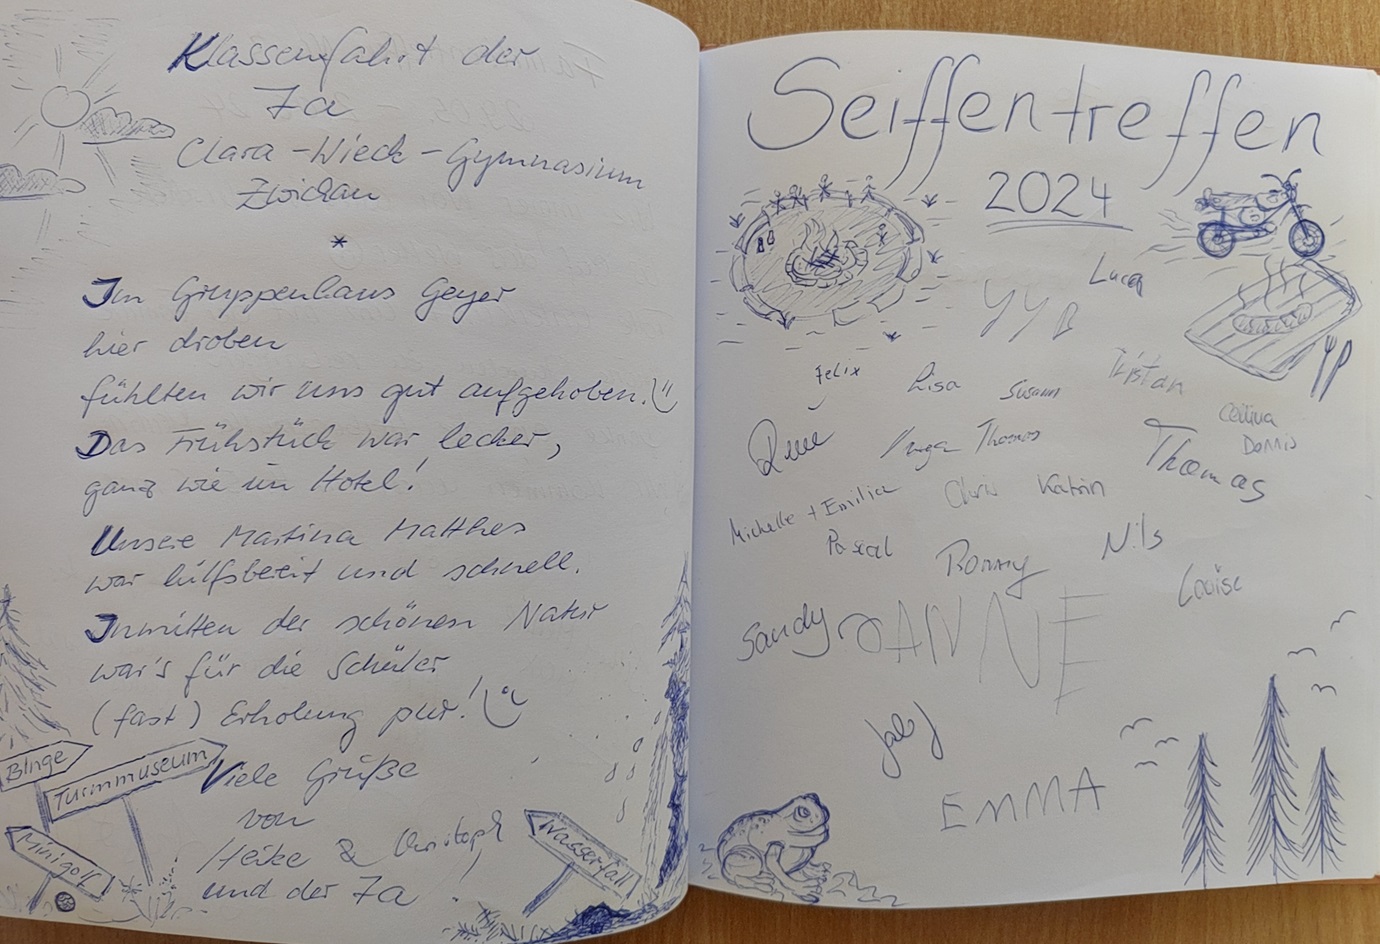 Klassenfahrt der
7a
Clara-Wieck-Gymnasium
Zwickau
*
Im Gruppenhaus Geyer
hier droben
fühlten wir uns gut aufgehoben.
Das Frühstück war lecker,
ganz wie im Hotel!
Unsere Martina Matthes
war hilfsbereit und schnell.
Inmitten der schönen Natur
war's für die Schüler
(fast) Erholung pur!
Viele Grüße
von
Heike & Christoph
und der 7a!
Binge
Turmmuseum
Minigolf
Wasserfall
Seiffentreffen
2024
Luca
Felix
Lisa
Susann
Tristan
Dennis
Thomas
Thomas
Michelle + Emilia
Chris
Katrin
Pascal
Ronny
Nils
Louise
Sandy
JANNE
EMMA